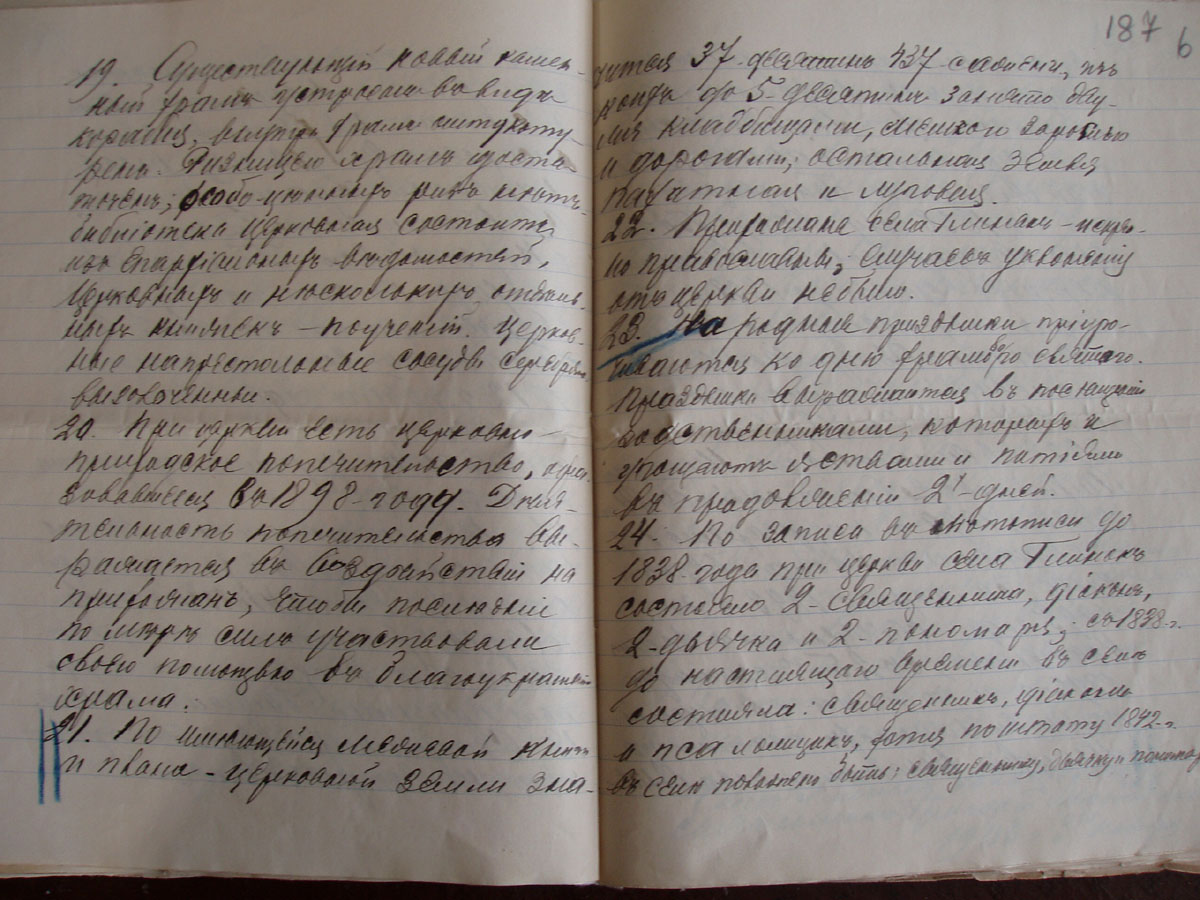 19. Существующій новый камен-
ный храмъ устроенъ въ виде
корабля, внутри храмъ оштукату-
ренъ. Ризницею храмъ доста-
точенъ; особо-ценныхъ ризъ нетъ.
библіотека церковная состоитъ
изъ Епархіальныхъ ведомостей,
Церковныхъ и несколькихъ отдель-
ныхъ книжекъ - поученій. Церков-
ные напрестольные сосуды серебряно
вызолоченныи.
20. При церкви есть церковно-
приходское попечительство, обра-
зовавшееся въ 1898-году. Дѣя-
тельность попечительства вы-
ражается въ воздѣйствіи на
прихожанъ, чтобы последніе
по мѣрѣ силъ участвовали
своею помощью въ благоукрашеніи
храма.
21. По имеющейся межевой книги
и плана - церковной земли зна-
187 6
чится 37 десятинъ 437-саженъ, изъ
коихъ до 5 десятинъ занято дву-
мя кладбищами, мелкою зарослью
и дорогами; остальная земля
пахатная и луговая.
22. Прихожане села Глинокъ - искре-
но православные; случаевъ уклоненія
отъ церкви небыло.
23. Народныя праздники пріуро-
чиваются ко дню храмового святаго.
Праздники выражаются въ посещеніи
родственниками, которыхъ и
угощаютъ яствами и питіями
въ продолженіи 2х-дней.
24. По записи въ лѣтописи до
1838-года при церкви села Глинокъ
состояло 2-священника, діаконъ,
2-дьячка и 2-пономаря; съ 1838-г.
до настоящаго времени въ селѣ
состояла: священникъ, діаконъ
и псаломщикъ, хотя по штату 1842-г.
въ селе положено быть: священнику, дьячку и пономарю